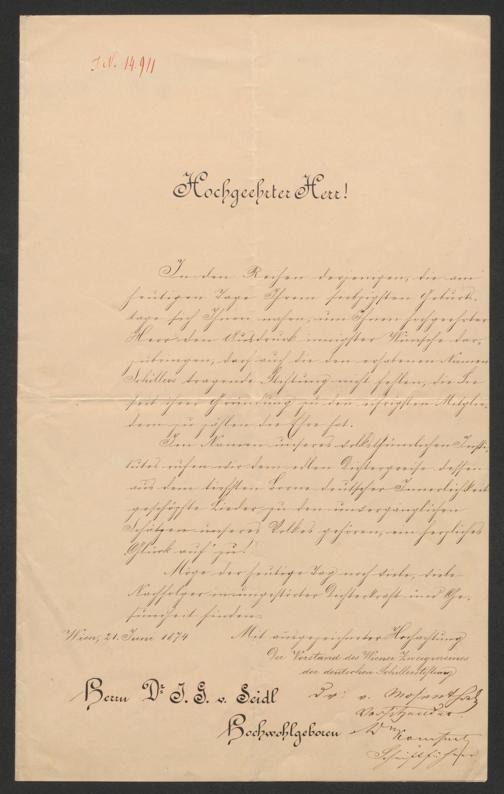 I. N. 14.911
Hochgeehrter Herr!
In den Reihen derjenigen, die am
heutigen Tage Ihrem siebzigsten Geburts-
tage sich Ihnen nahen, um Ihnen hochgeehrter
Herr den Ausdruck innigster Wünsche dar-
zubringen, darf auch die den erhabenen Namen
Schillers tragende Stiftung nicht fehlen, die Sie
seit ihrer Gründung zu den eifrigsten Mitglie-
dern zu zählen die Ehre hat.
Im Namen unseres volksthümlichen Insti-
tutes rufen wir dem edlen Dichtergreise dessen
aus dem tiefsten Borne deutscher Innerlichkeit
geschöpfte Lieder zu den unvergänglichen
Schätzen unseres Volkes gehören, ein herzliches
Glück auf zu!
Möge der heutige Tag noch viele, viele
Nachfolger in ungestörter Dichterkraft und Ge-
sundheit finden.
Wien, 21. Juni 1874 Mit ausgezeichneter Hochachtung
Der Vorstand des Wiener Zweigvereines
der deutschen Schillerstiftung
Herrn Dr. J. G. v. Seidl
Hochwohlgeboren
Dr. v. Mosenthal
Vorsitzender
Schriftführer